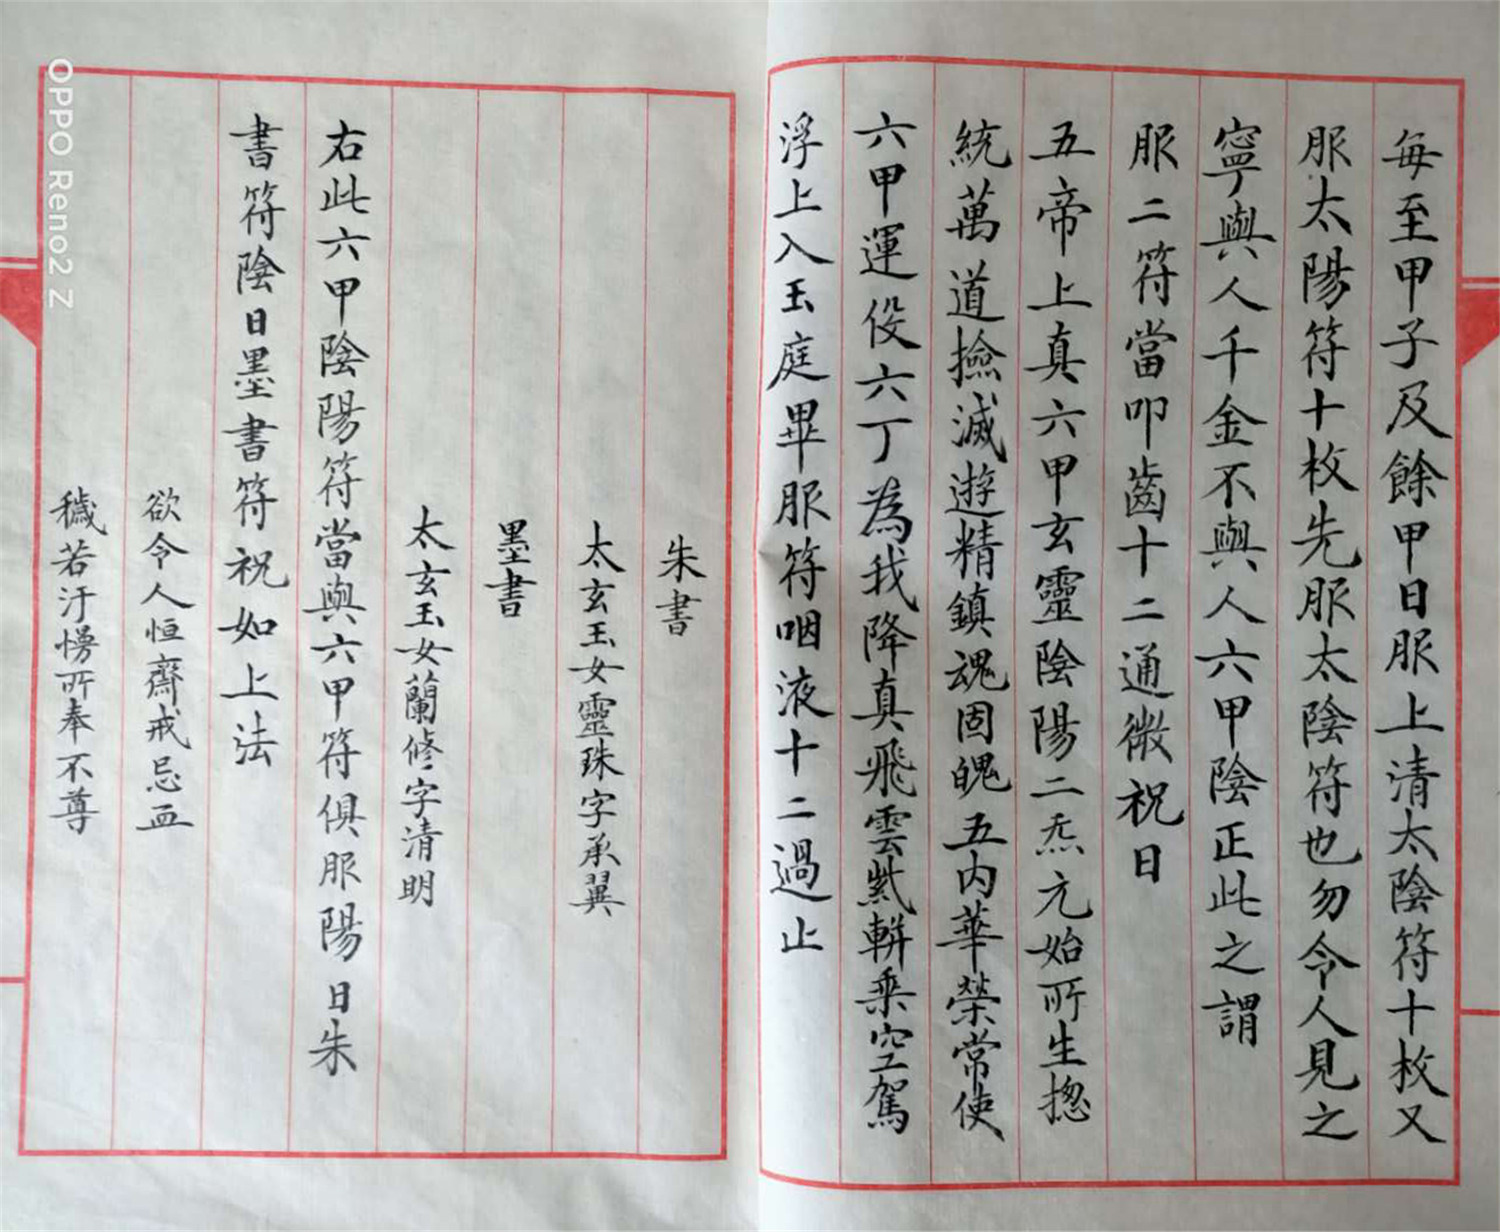 每至甲子及餘甲日服上清太陰符十枚又
服太陽符十枚先服太陰符也勿令人見之
寧與人千金不與人六甲陰正此之謂
服二符當叩齒十二通微祝日
五帝上真六甲玄靈陰陽二炁元始所生揔
統萬道撿滅遊精鎮魂固魄五内華榮常使
六甲運役六丁為我降真飛雲紫軿乗空駕
浮上入玉庭畢服符咽液十二過止
朱書
太玄玉女靈珠字承翼
墨書
太玄玉女蘭修字清明
右此六甲陰陽符當與六甲符俱服陽日朱
書符陰日墨書符祝如上法
欲令人恒齋戒忌血
穢若汙慢所奉不尊
OPPO Reno2 Z